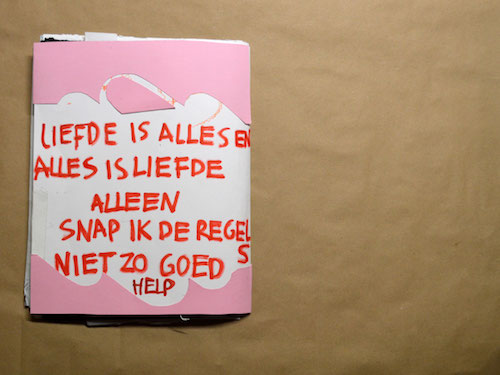 LIEFDE IS ALLES EN
ALLES IS LIEFDE
ALLEEN
SNAP IK DE REGELS
NIET ZO GOED
HELP